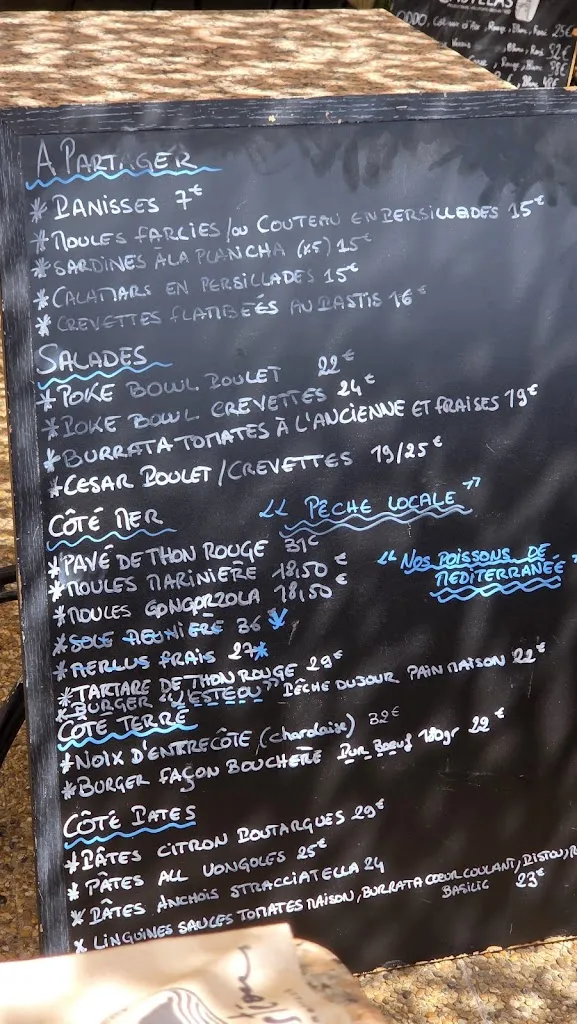 A PARTAGER
* PANISSES 7€
* MOULES FARCIES /OU COUTEAU EN PERSILLADES 15€
* SARDINES À LA PLANCHA (x5) 15€
* CALAMARS EN PERSILLADES 15€
* CREVETTES FLAMBÉÉS AU PASTIS 16€
SALADES
* POKE BOWL POULET 22€
* POKE BOWL CREVETTES 24€
* BURRATA TOMATES À L'ANCIENNE ET FRAISES 19€
* CESAR POULET / CREVETTES 19/25€
CÔTÉ MER " PÊCHE LOCALE "
* PAVÉ DE THON ROUGE 31€
" NOS POISSONS DE
* MOULES MARINIÈRE 18,50 €
MEDITERRANÉE "
* MOULES GONGORZOLA 18,50 €
* SOLE MEUNIÈRE 36 *
* MERLUS FRAIS 27 *
* TARTARE DE THON ROUGE 29€
* BURGER "L'ESTEOU" PÊCHE DU JOUR PAIN MAISON 22€
CÔTÉ TERRE
* NOIX D'ENTRECÔTE (charolaise) 32€
* BURGER FAÇON BOUCHÈRE Pur Boeuf 180gr 22€
CÔTÉ PATES
* PÂTES CITRON BOUTARGUES 29€
* PÂTES ALL VONGOLES 25€
* PÂTES ANCHOIS STRACCIATELLA 24
* LINGUINES SAUCES TOMATES MAISON, BURRATA CŒUR COULANT, PISTOU,
BASILIC 23€